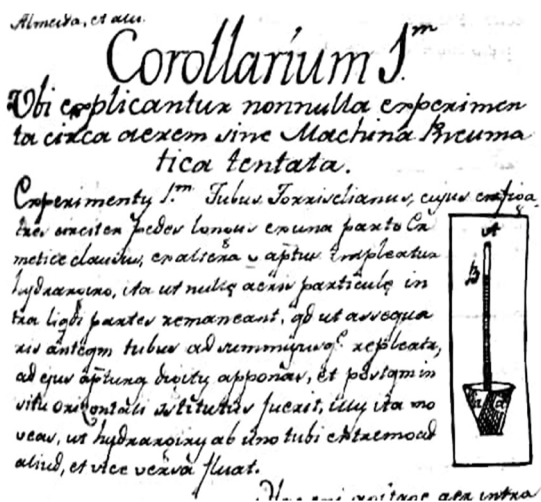 Almeida, et alii.
Corollarium 1.m
Ubi explicantur nonnulla experimen
ta circa aerem sine Machina Pneuma
tica tentata.
Experimentũ 1.m Tubus Torricelianus, cujus
tres circiter pedes longus ex una parte Er
metice clausus, ex altera v aptus impleatur
hydrargiro, ita ut nullę aeris particulę in
tra liqdi partes remaneant, qd ut assequa
ris anteqm tubus ad summũ usq. repleatr,
ad ejus apturą digitũ apponas, et postqm in
situ orizontali fuerit, illũ ita mo
veas, ut hydrargirũ ab uno tubi extremo ad
aliud, et vice versâ fluat.
A
B
aer intra